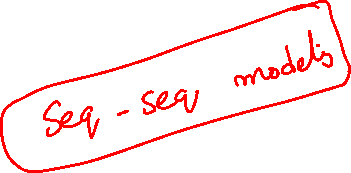 Seq - seq models